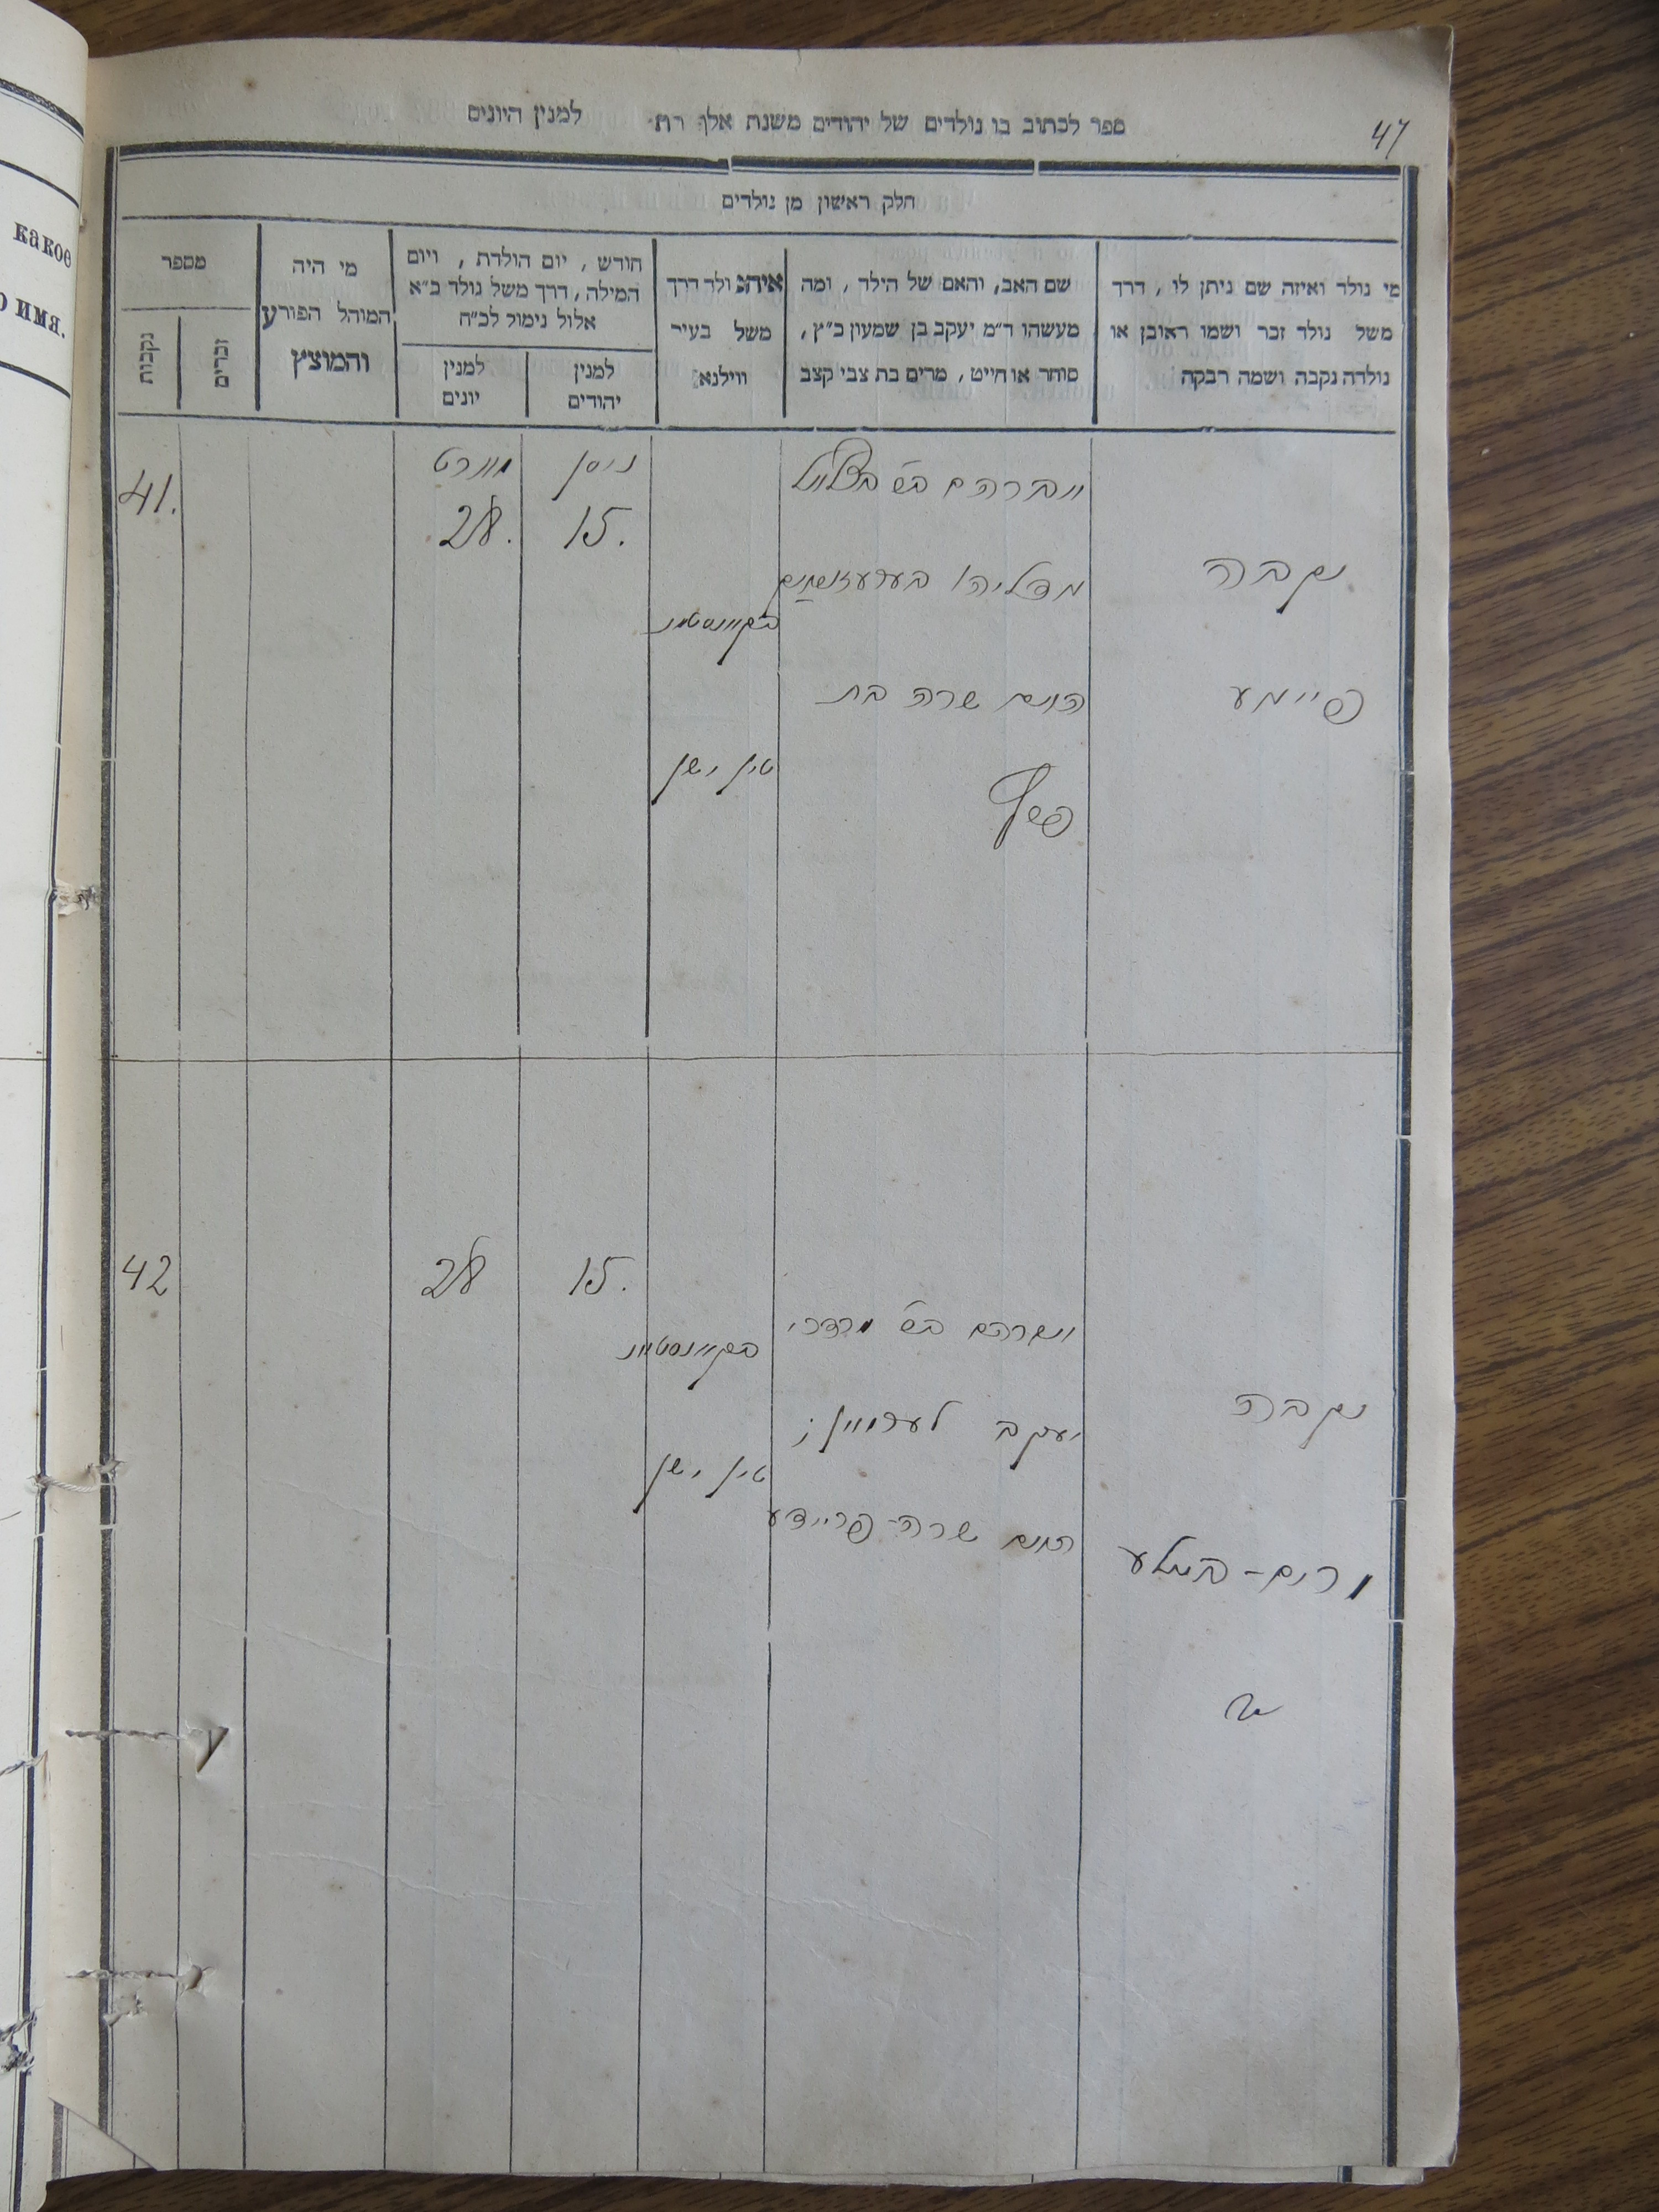 47
ספר לכתוב בו נולדים של יהודים משנת אלף תת למנין היונים
חלק ראשון מן נולדים
מי נולד ואיזה שם ניתן לו, דרך
משל נולד זכר ושמו ראובן או
נולדה נקבה ושמה רבקה
שם האב, והאם של הילד, ומה
מעשהו ד״מ יעקב בן שמעון כ״ץ,
סוחר או חייט, מרים בת צבי קצב
איהנ ולד דרך
משל בעיר
ווילנא
חודש, יום הולדת, ויום
המילה, דרך משל נולד כ״א
אלול נימול לכ״ח
למנין
יהודים
למנין
יונים
מי היה
המוהל הפורע
והמוצץ
מספר
זכרים
נקבות
какое
имя.
נקבה
פיימע
אברהם
האם שרה בת
טין ישן
ניסן
15.
מארט
28.
41.
נקבה
מרדכי
יעקב
האם שרה-פריידע
טין ישן
15.
28
42